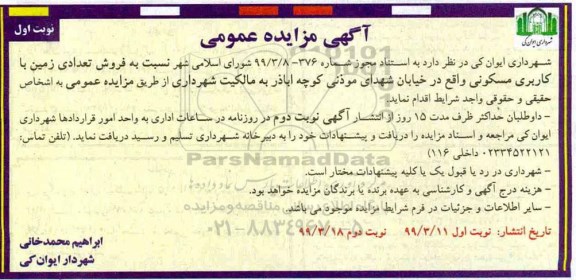 شهرداری ایوان کی
آگهی مزایده عمومی
نوبت اول
شهرداری ایوان کی در نظر دارد به استناد مجوز شماره ۳۷۶- ۹۹/۳/۸ شورای اسلامی شهر نسبت به فروش تعدادی زمین با
کاربری مسکونی واقع در خیابان شهدای موذنی کوچه اباذر به مالکیت شهرداری از طریق مزایده عمومی به اشخاص
حقیقی و حقوقی واجد شرایط اقدام نماید.
- داوطلبان حداکثر ظرف مدت ۱۵ روز از انتشار آگهی نوبت دوم در روزنامه در ساعات اداری به واحد امور قراردادها شهرداری
ایوان کی مراجعه و اسناد مزایده را دریافت و پیشنهادات خود را به دبیرخانه شهرداری تسلیم و رسید دریافت نماید. (تلفن تماس:
۰۲۳۳۴۵۲۲۱۲۱ داخلی ۱۱۶)
ParsNamadData
- شهرداری در رد یا قبول یک یا کلیه پیشنهادات مختار است.
- هزینه درج آگهی و کارشناسی به عهده برنده یا برندگان مزایده خواهد بود.
- سایر اطلاعات و جزئیات در فرم شرایط مزایده موجود می باشد.
تاریخ انتشار: نوبت اول ۹۹/۳/۱۱ نوبت دوم ۹۹/۳/۱۸
ابراهیم محمدخانی
شهردار ایوان کی